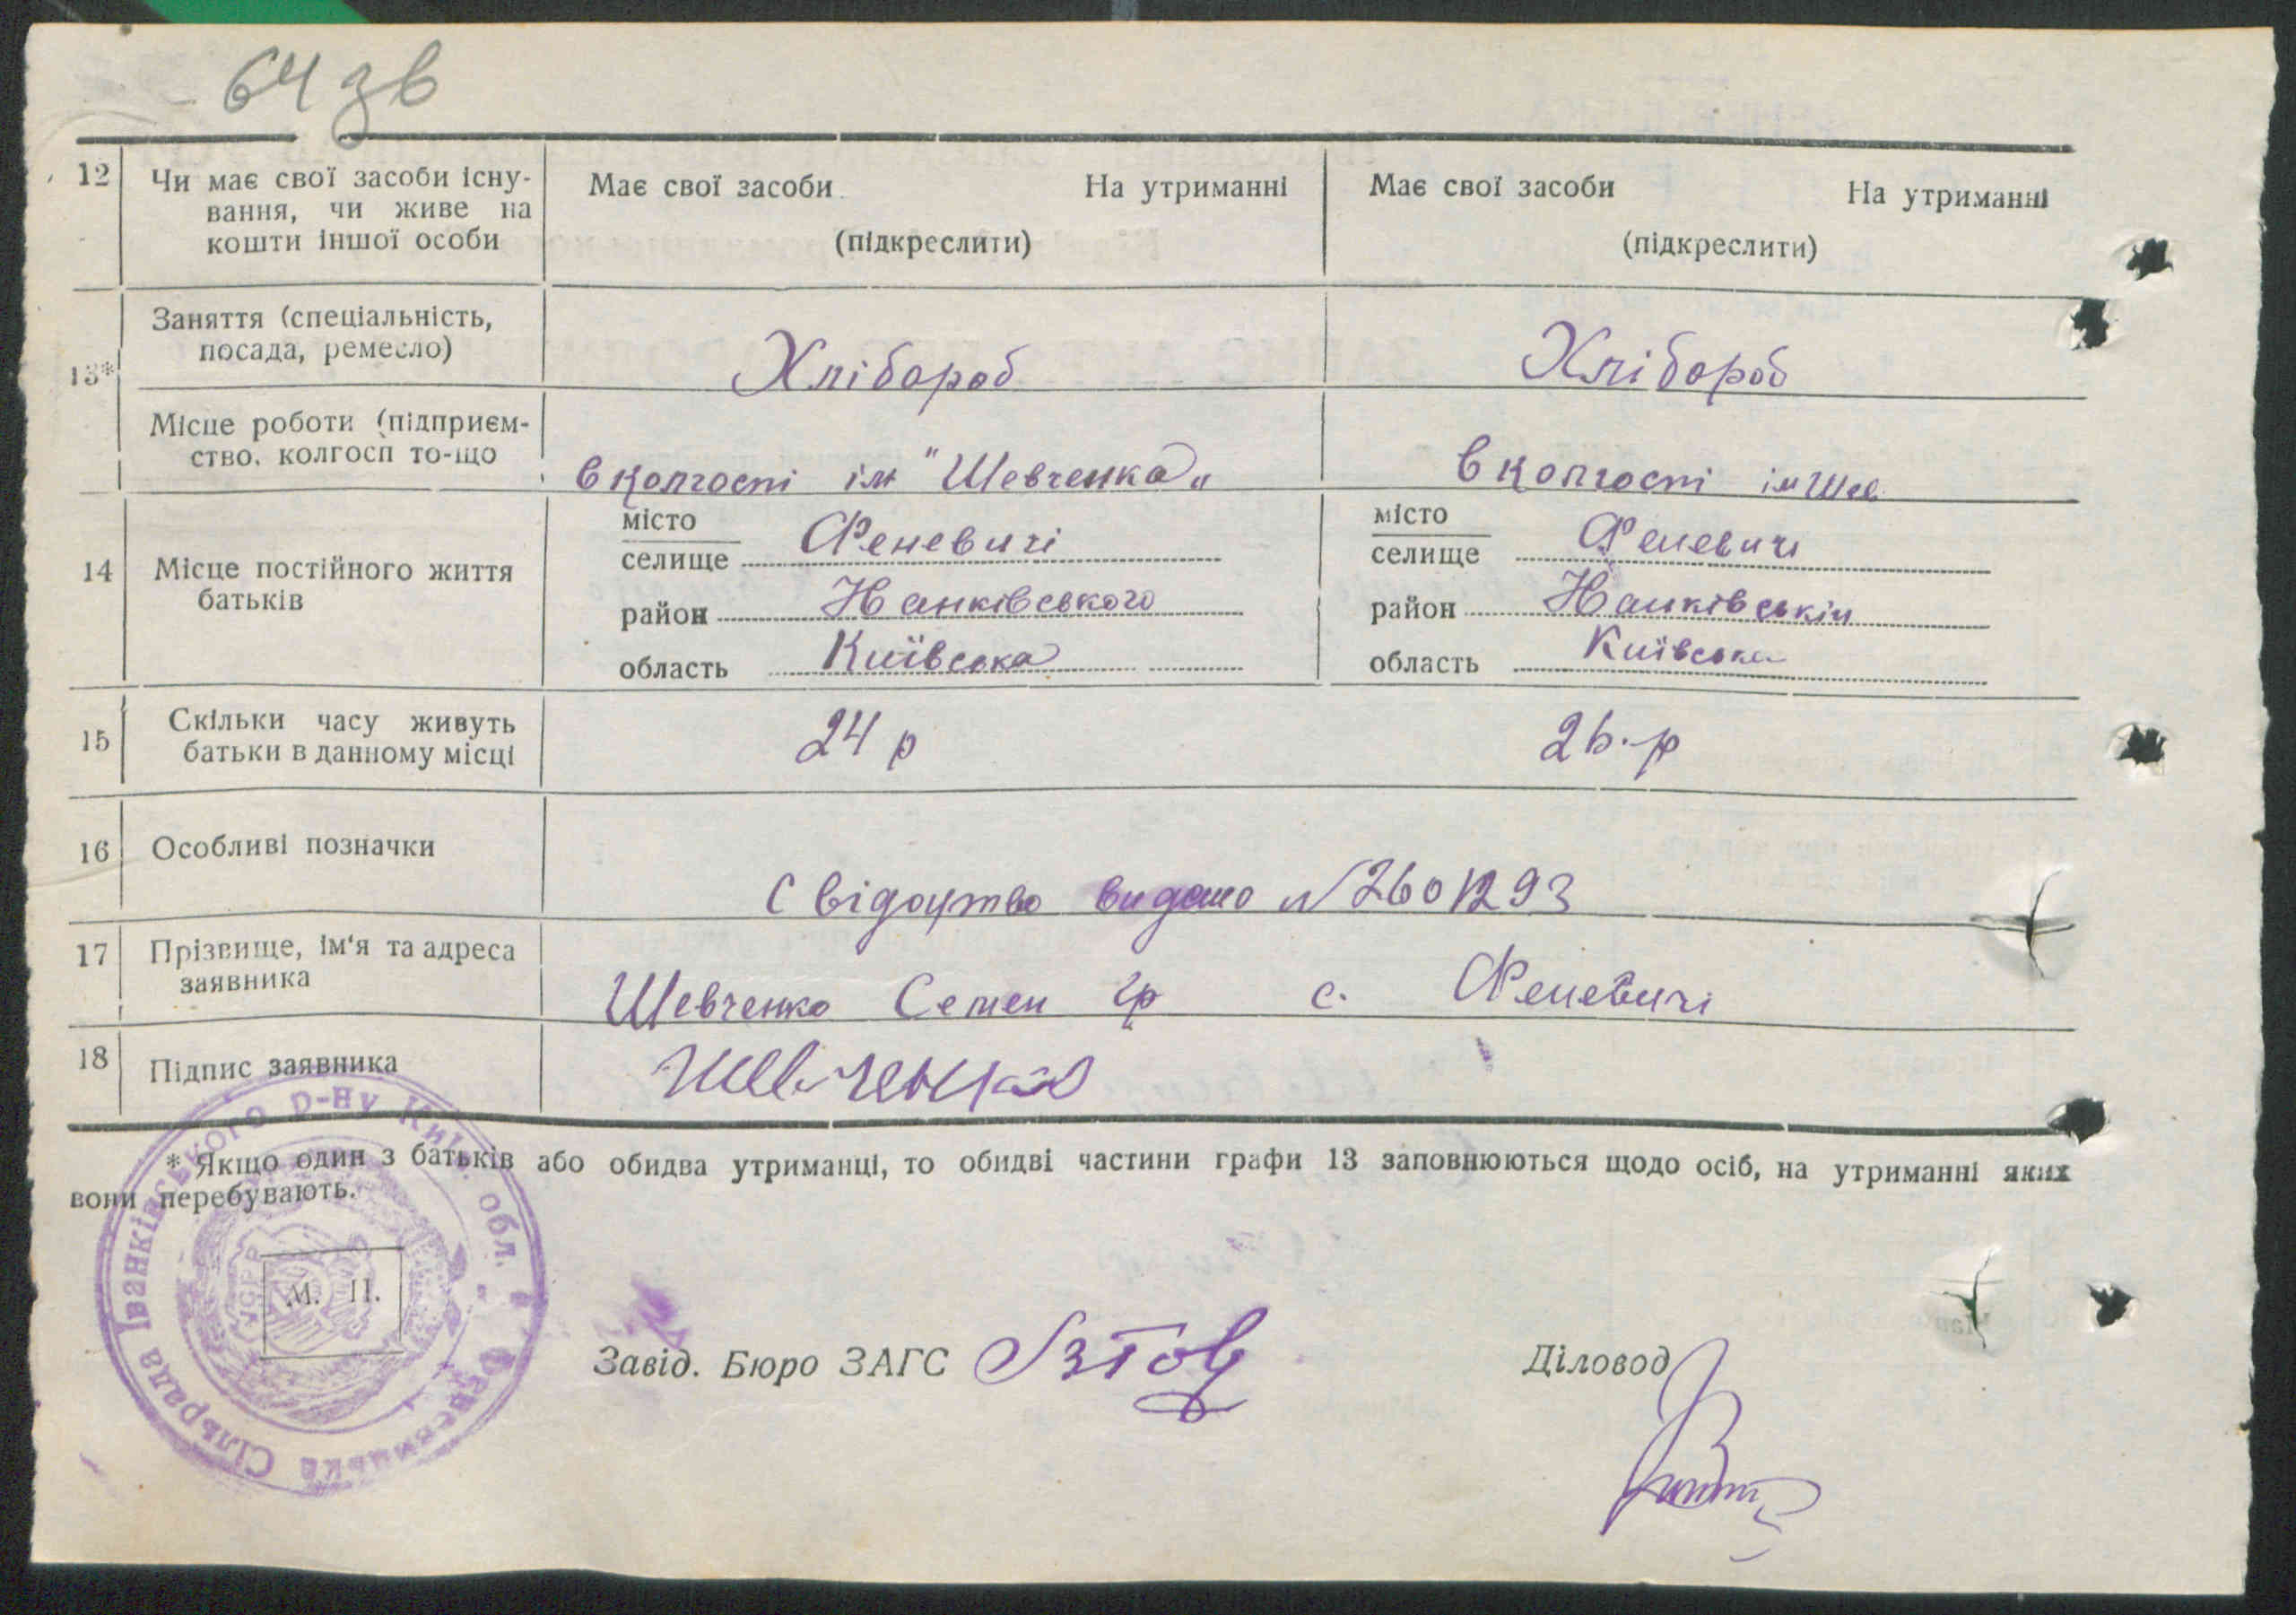 64 зв
12 Чи має свої засоби існу-
вання, чи живе на
кошти іншої особи
Має свої засоби На утриманні
(підкреслити)
Має свої засоби На утриманні
(підкреслити)
13* Заняття (спеціальність,
посада, ремесло)
Хлібороб
Хлібороб
Місце роботи (підприєм-
ство, колгосп то-що
в колгоспі ім "Шевченка„
в колгоспі ім Шев
14 Місце постійного життя
батьків
місто
селище Феневичі
район Іванківського
область Київська
місто
селище Феневичі
район Іванківськім
область Київська
15 Скільки часу живуть
батьки в данному місці
24 р
26. р
16 Особливі позначки
Свідоцтво видано N 2601293
17 Прізвище, ім'я та адреса
заявника
Шевченко Семен Гр с. Феневичі
18 Підпис заявника
Шевченко
* Якщо один з батьків або обидва утриманці, то обидві частини графи 13 заповнюються щодо осіб, на утриманні яких
вони перебувають.
М. П.
Феневицька Сільрада Іванківського р-ну Київ. обл.
УСРР
Завід. Бюро ЗАГС
Діловод